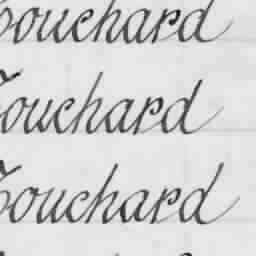 Touchard
Touchard
Touchard